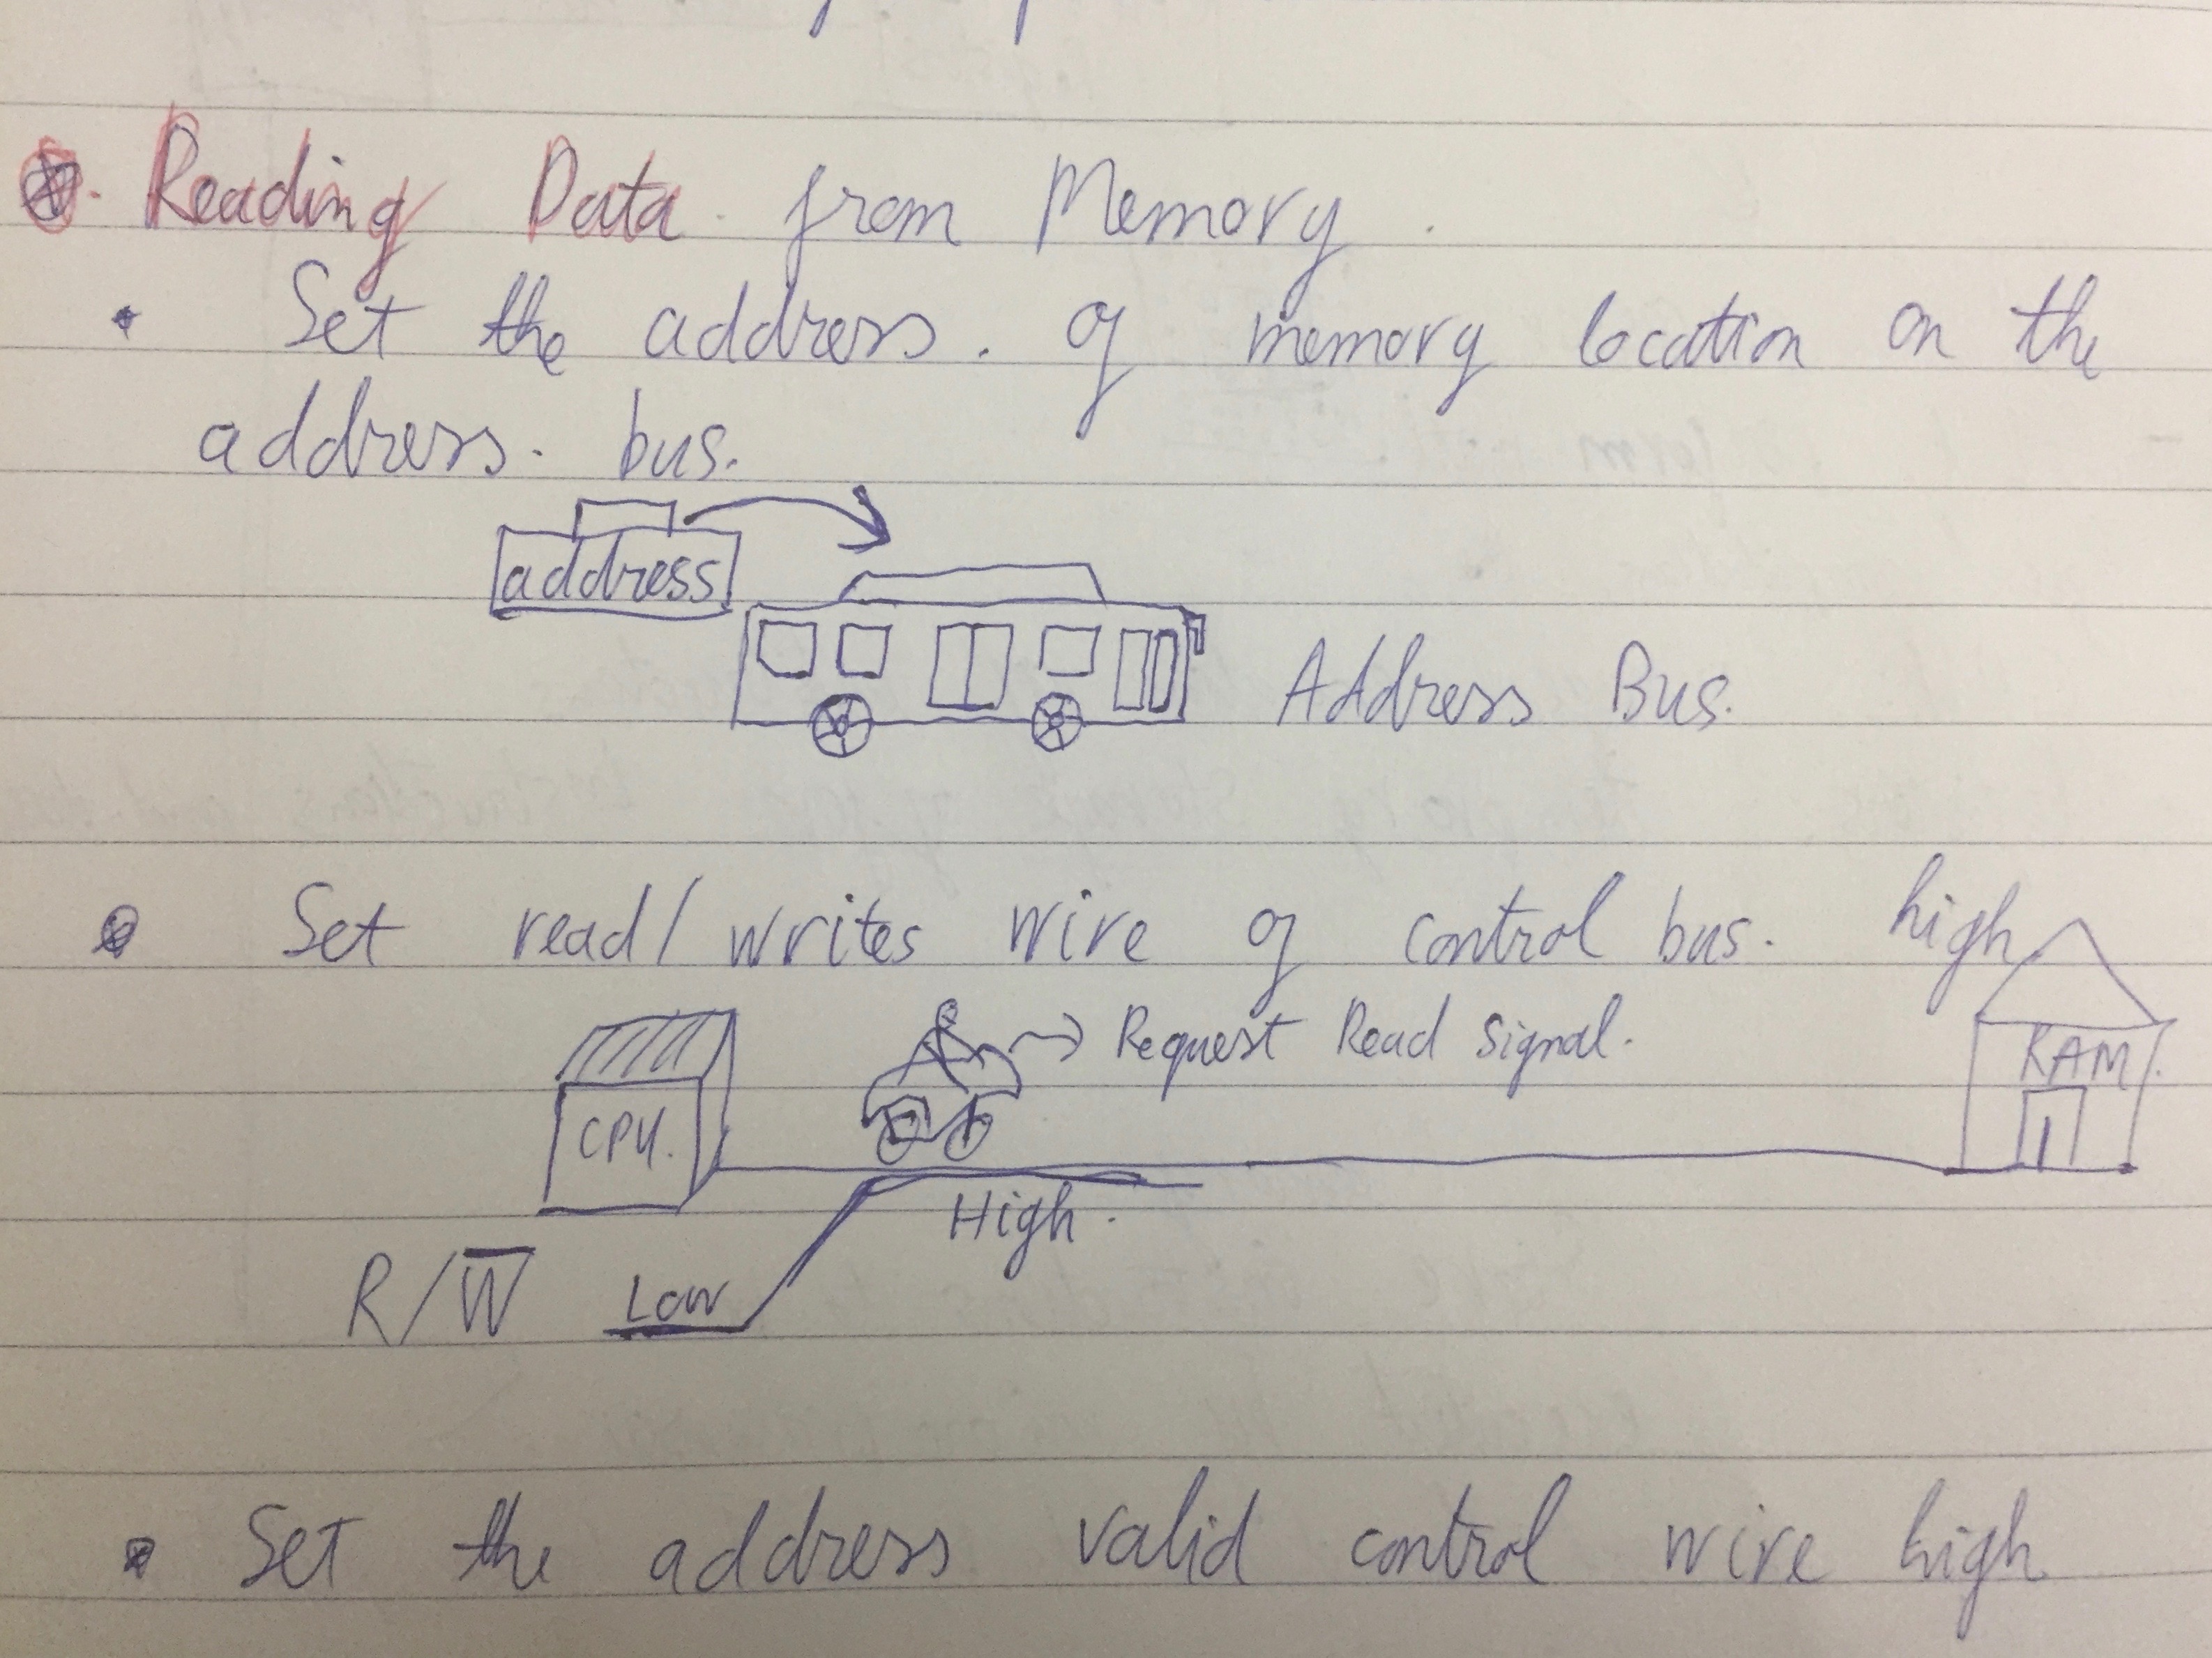 Reading Data from Memory.
• Set the address. of memory location on the
address. bus.
address
Address Bus.
• Set read/writes wire of control bus. high
→ Request Read Signal.
RAM.
CPU.
High.
R/W̅ Low
• Set the address valid control wire high